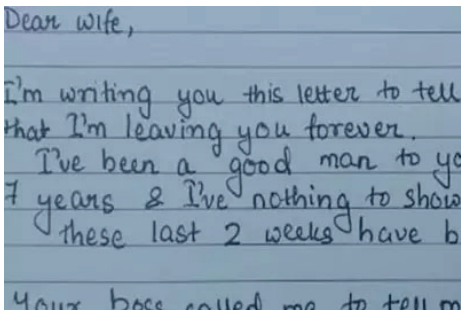 Dear wife,
I'm writing you this letter to tell
that I'm leaving you forever.
I've been a good man to yo
7 years & I've nothing to show
these last 2 weeks have b
Your boss called me to tell m